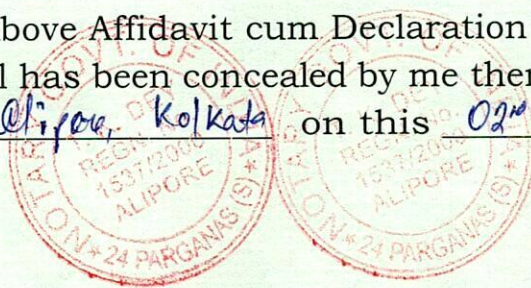 bove Affidavit cum Declaration
l has been concealed by me ther
Alipore, Kolkata on this 02nd
NOTARY GOVT. OF W
REGN. NO
1537/2000
ALIPORE
24 PARGANAS (S)
NOTARY GOVT. OF
REGN. NO
1537/2000
ALIPORE
24 PARGANAS